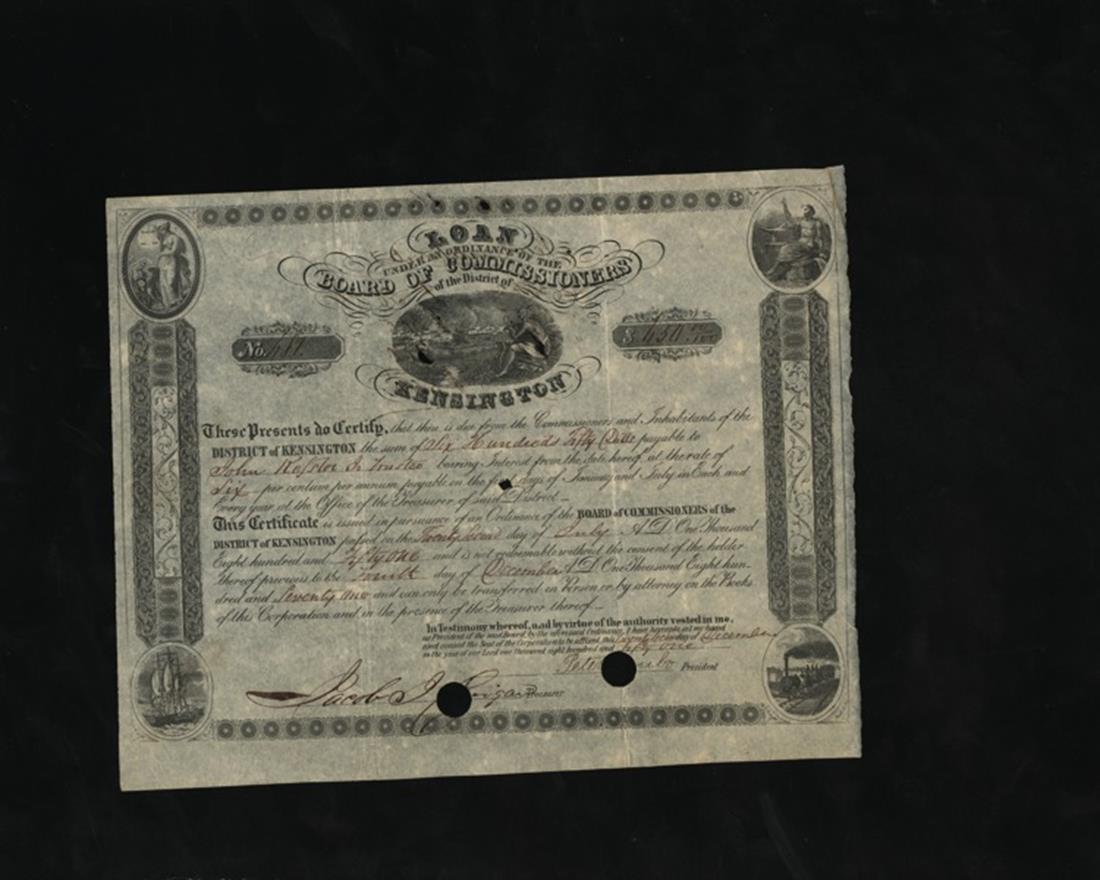 LOAN
UNDER AN ORDINANCE OF THE
BOARD OF COMMISSIONERS
of the District of
No.
$ 650
KENSINGTON
These Presents do Certify, that there is due from the Commissioners and Inhabitants of the
DISTRICT of KENSINGTON the sum of Six Hundred & Fifty Dolls payable to
John Jr Trustee bearing Interest from the date hereof, at the rate of
Six per centum per annum payable on the days of January and July in Each and
Every year at the Office of the Treasurer of said District.
This Certificate is issued in pursuance of an Ordinance of the BOARD of COMMISSIONERS of the
DISTRICT of KENSINGTON passed on the day of July A.D. One Thousand
Eight hundred and Fifty one and is not redeemable without the consent of the holder
thereof previous to the Fourth day of December A.D. One Thousand Eight hun-
dred and Seventy one and can only be transferred in Person or by attorney on the Books
of this Corporation and in the presence of the Treasurer thereof.
In Testimony whereof, and by virtue of the authority vested in me,
as President of the said Board, by the aforesaid Ordinance, I have hereunto set my hand
and caused the Seal of the Corporation to be affixed, this day of December
in the year of our Lord one thousand eight hundred and fifty one.
President
Jacob Treasurer